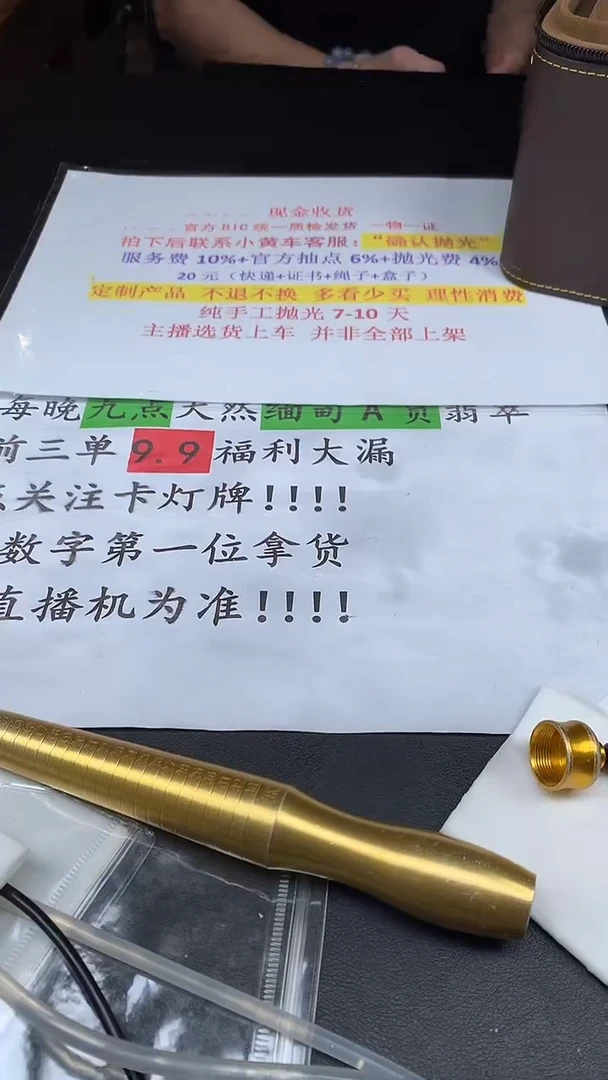 现金收货
官方BIC统一质检发货 一物一证
拍下后联系小黄车客服：“确认抛光”
服务费 10%+官方抽点 6%+抛光费 4%
20 元（快递+证书+绳子+盒子）
定制产品 不退不换 多看少买 理性消费
纯手工抛光 7-10 天
主播选货上车 并非全部上架
每晚九点天然缅甸A货翡翠
前三单9.9福利大漏
关注卡灯牌!!!!
数字第一位拿货
直播机为准!!!!